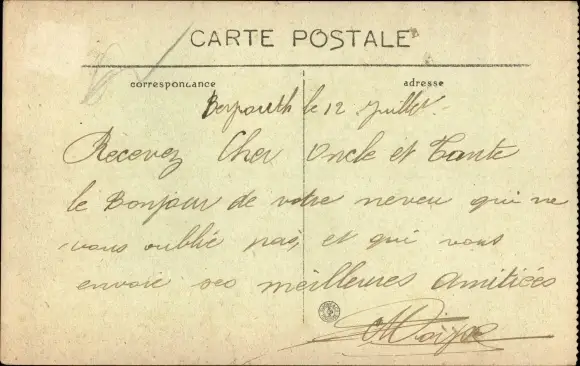 CARTE POSTALE
correspondance
adresse
Beyrouth le 12 Juillet.
Recevez Cher Oncle et Tante
le Bonjour de votre neveu qui ne
vous oublie pas, et qui vous
envoie ses meilleures amitiées